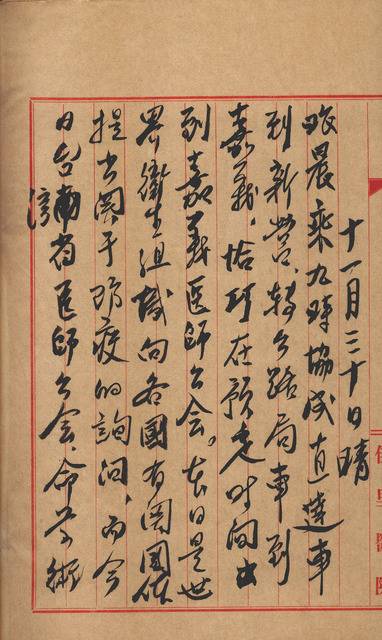 十一月三十日 晴
昨晨乘九時協成直達車
到新營、轉公路局車到
嘉義,恰巧在預定时间出
到嘉義医師公会。本日是世
界衛生組織向各國有関團体
提出関于防疫的詢问,而今
日台湾省医師公会,命学術